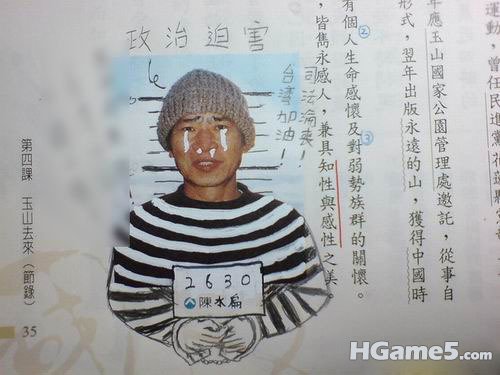 運動，曾任民進黨
年應玉山國家公園管理處邀託，從事自
形式，翌年出版永遠的山，獲得中國時
②
有個人生命感懷及對弱勢族群的關懷。
③
，皆雋永感人，兼具知性與感性之美
政治迫害
司法淪喪！
台湾加油！
2630
陳水扁
第四課 玉山去來（節錄）
35
HGame5.com